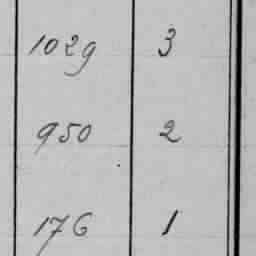 1029 3
950 2
176 1